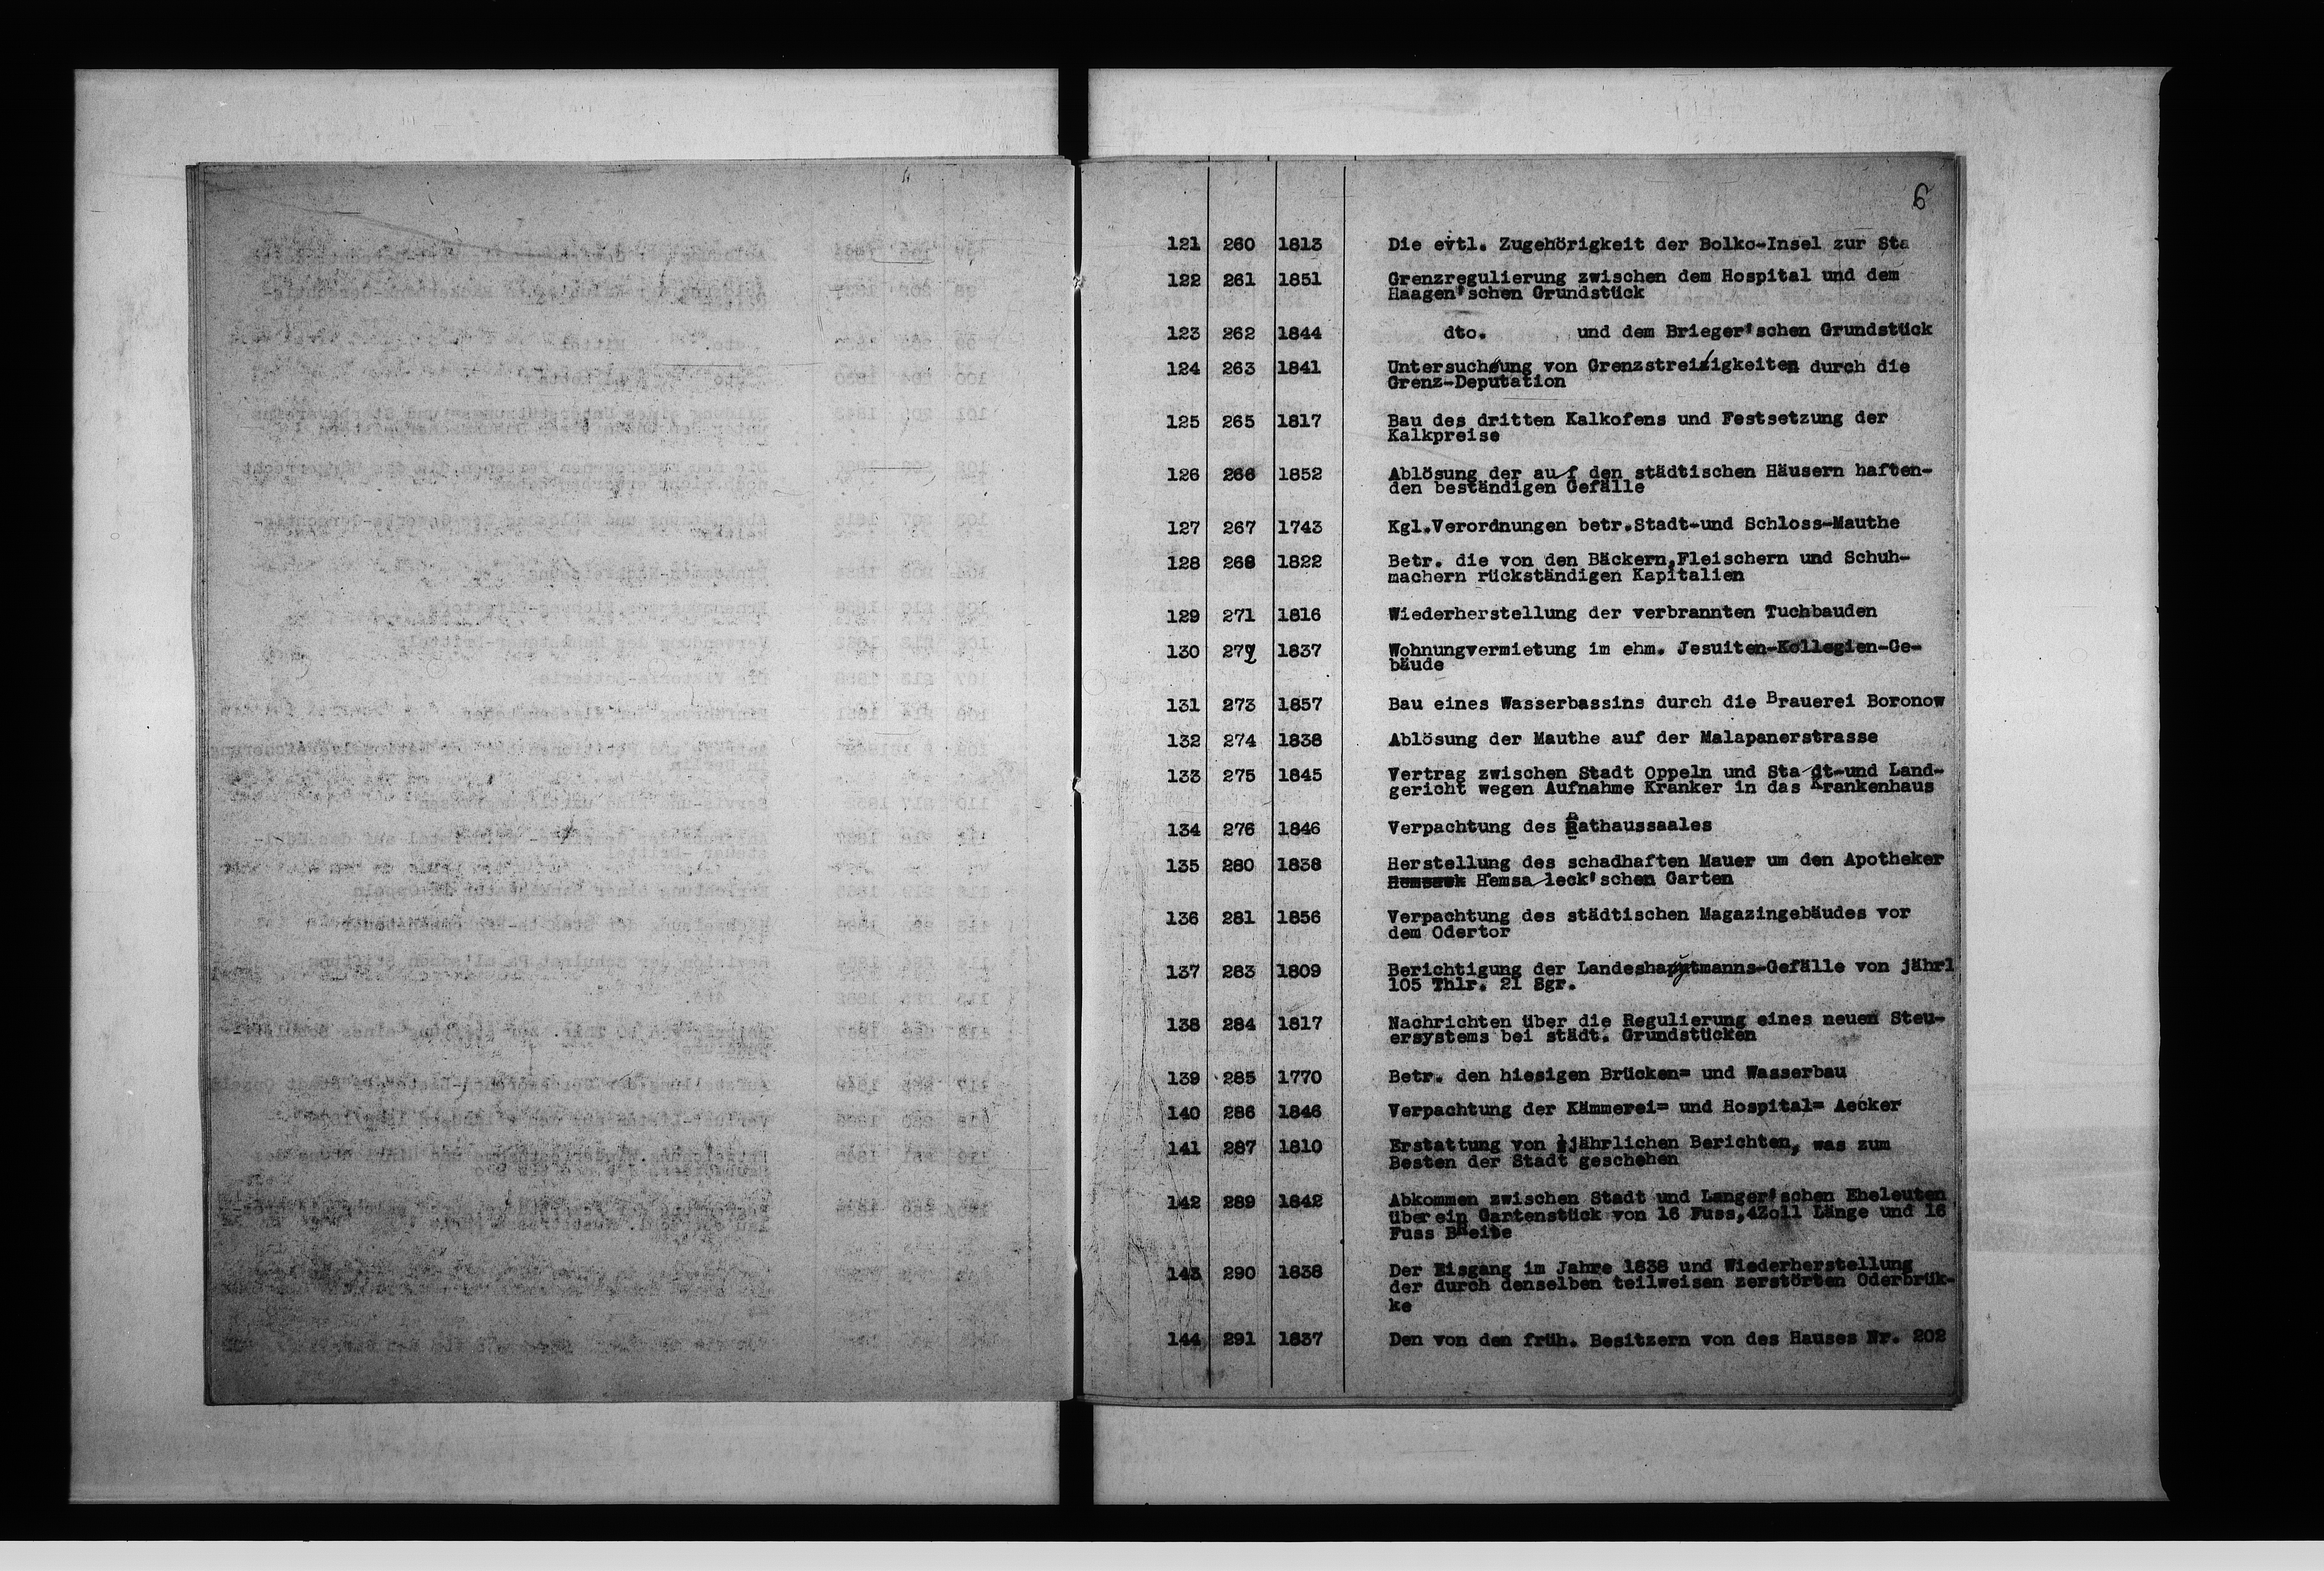 6
121 260 1813 Die evtl. Zugehörigkeit der Bolko-Insel zur Sta
122 261 1851 Grenzregulierung zwischen dem Hospital und dem
Haagen'schen Grundstück
123 262 1844 dto. und dem Brieger'schen Grundstück
124 263 1841 Untersuchung von Grenzstreitigkeiten durch die
Grenz-Deputation
125 265 1817 Bau des dritten Kalkofens und Festsetzung der
Kalkpreise
126 266 1852 Ablösung der auf den städtischen Häusern haften-
den beständigen Gefälle
127 267 1743 Kgl.Verordnungen betr.Stadt-und Schloss-Mauthe
128 268 1822 Betr. die von den Bäckern,Fleischern und Schuh-
machern rückständigen Kapitalien
129 271 1816 Wiederherstellung der verbrannten Tuchbauden
130 272 1837 Wohnungvermietung im ehm. Jesuiten-Kollegien-Ge-
bäude
131 273 1857 Bau eines Wasserbassins durch die Brauerei Boronow
132 274 1838 Ablösung der Mauthe auf der Malapanerstrasse
133 275 1845 Vertrag zwischen Stadt Oppeln und Stadt-und Land-
gericht wegen Aufnahme Kranker in das Krankenhaus
134 276 1846 Verpachtung des Rathaussaales
135 280 1838 Herstellung des schadhaften Mauer um den Apotheker
Hemsaleck'schen Garten
136 281 1856 Verpachtung des städtischen Magazingebäudes vor
dem Odertor
137 283 1809 Berichtigung der Landeshauptmanns-Gefälle von jährl
105 Thlr. 21 Sgr.
138 284 1817 Nachrichten über die Regulierung eines neuen Steu-
ersystems bei städt. Grundstücken
139 285 1770 Betr. den hiesigen Brücken= und Wasserbau
140 286 1846 Verpachtung der Kämmerei= und Hospital= Aecker
141 287 1810 Erstattung von ½jährlichen Berichten, was zum
Besten der Stadt geschehen
142 289 1842 Abkommen zwischen Stadt und Langer'schen Eheleuten
über ein Gartenstück von 16 Fuss,4Zoll Länge und 16
Fuss Breite
143 290 1838 Der Eisgang im Jahre 1838 und Wiederherstellung
der durch denselben teilweisen zerstörten Oderbrük-
ke
144 291 1837 Den von den früh. Besitzern von des Hauses Nr. 202